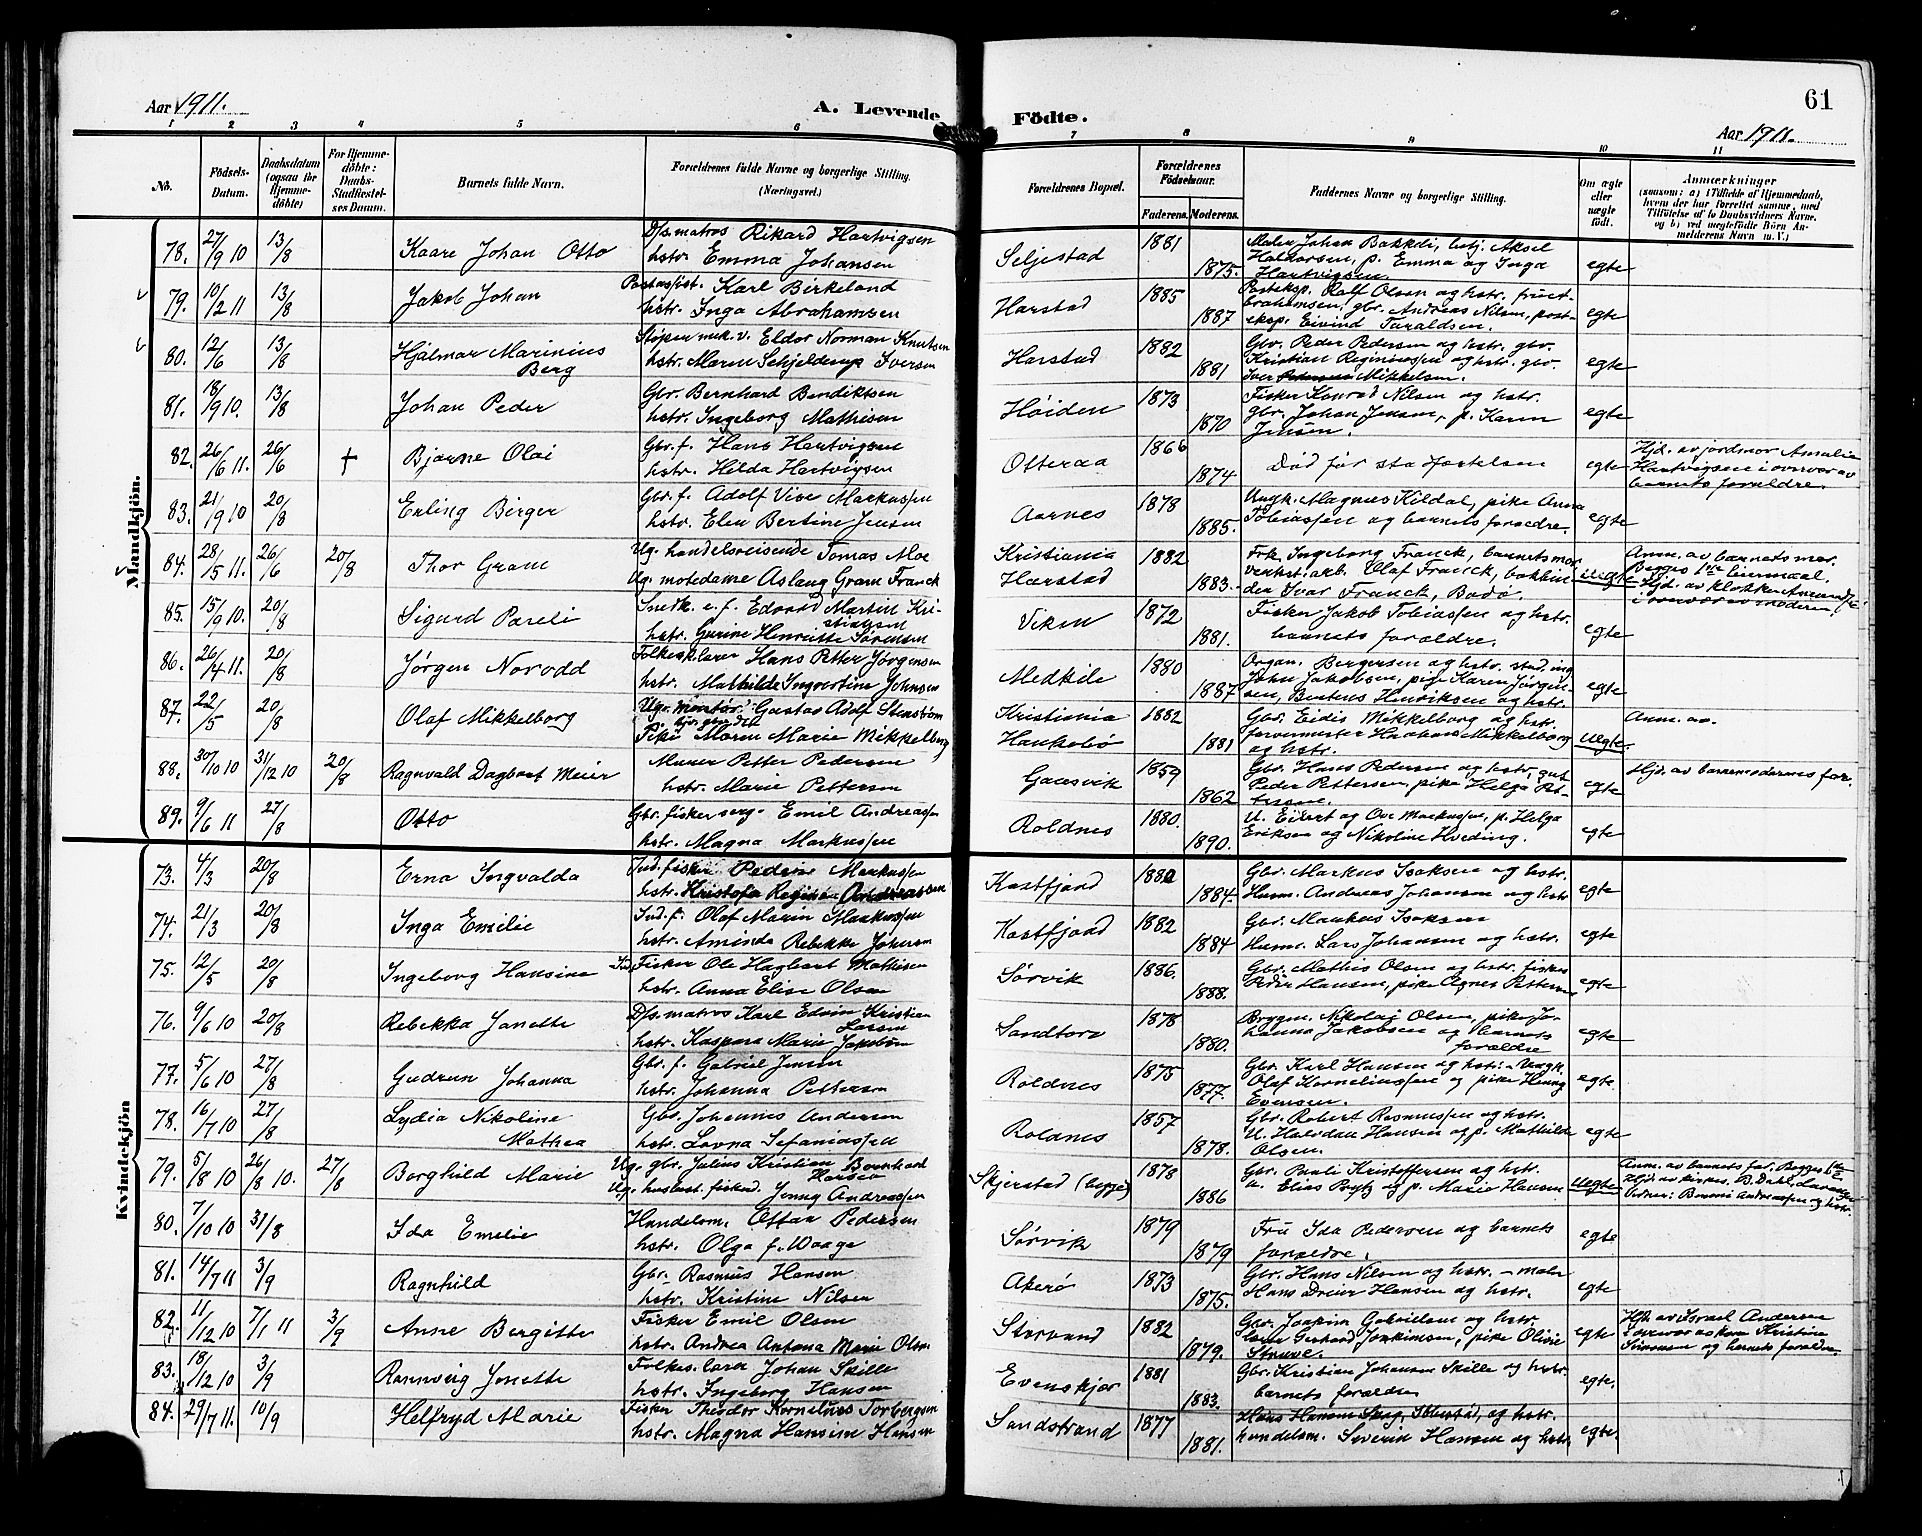 Aar 1911.
A. Levende
Födte.
61
Aar 1911.
1 2 3 4 5 6 7 8 9 10 11
No.
Födsels-Datum.
Daabsdatum (ogsaa for Hjemmedöbte)
For Hjemmedöbte: Daabs-Stadfæstelses Datum.
Barnets fulde Navn.
Forældrenes fulde Navne og borgerlige Stilling. (Næringsvei.)
Forældrenes Bopæl.
Forældrenes Födselsaar.
Faderens. Moderens.
Faddernes Navne og borgerlige Stilling.
Om ægte eller uægte födt.
Anmærkninger
(saasom: a) i Tilfælde af Hjemmedaab, hvem der har forrettet samme, med Tilföielse af to Daabsvidners Navne, og b) ved uægtefödte Börn Anmelderens Navn m. V.)
Mandkjön.
78. 27/9 10 13/8 Kaare Johan Otto
D/s. matros Rikard Hartvigsen
hstr. Emma Johansen
Seljestad 1881 1875.
Maler Johan Bakkeli, betj. Aksel
Halvorsen, p. Emma og Inga
Hartvigsen
egte
79. 10/2 11 13/8 Jakob Johan
Postassist. Karl Birkeland
hstr. Inga Abrahamsen
Harstad 1885 1887
Posteksp. Rolf Olsen og hstr.
gbr. Andreas Nilsen, post-
eksp. Eivind Taraldsen.
egte
80. 12/6 13/8 Hjalmar Marinius
Berg
Eldor Norman Knutsen
hstr. Maren Schjelderup Iversen
Harstad 1882 1881
Gbr. Peder Pedersen og hstr. gbr.
Kristian Reginiussen og hstr. gbr.
Iver Mikkelsen.
egte
81. 18/9 10. 13/8 Johan Peder
Gbr. Bernhard Bendiktsen
hstr. Ingeborg Mathisen
Høiden 1873 1870
Fisker Konrad Nilsen og hstr.
gbr. Johan Jensen, p. Karen
Jensen.
egte
82. 26/6 11. 26/6 † Bjarne Olai
Gbr. f. Hans Hartvigsen
hstr. Hilda Hartvigsen
Otteraa 1866 1874
Død før stadfæstelsen
egte
Hjd. av jordmor Amalie
Hartvigsen i overvær av
barnets forældre.
83. 21/9 10 20/8 Erling Birger
Gbr. f. Adolf Vise Markussen
hstr. Elen Bertine Jensen
Aarnes 1878 1885.
Ungk. Magnus Kildal, pike Anna
Tobiassen og barnets forældre.
egte
84. 28/5 11. 26/6 20/8 Thor Gram
Ug. handelsreisende Tomas Moe
Ug. motedame Aslaug Gram Franck
Kristiania
Harstad
1882 1883.
Frk. Ingeborg Franck, barnets mor
verkst. arb. Olaf Franck,
Ivar Franck, Bodø.
Uegte
Anm. av barnets mor.
Begges 1ste leiermaal.
Hjd. av klokker
i overvær av moderen.
85. 15/9 10. 20/8 Sigurd Pareli
Snedk. e. f. Edvard Martin Kri-
stiansen
hstr. Gurine Henriette Sørensen
Viken 1872 1881.
Fisker Jakob Tobiassen og hstr.
barnets forældre.
egte
86. 26/4 11. 20/8 Jørgen Norodd
Folkesklærer Hans Petter Jørgensen
hstr. Mathilde Ingvertine Johnsen
Medkile 1880 1887
Organ. Bergersen og hstr. stud. ing.
John Jakobsen, pige Karen Jørgen-
sen, Henriksen og hstr.
egte
87. 22/5 20/8 Olaf Mikkelborg
Ugr. montør Gustav Adolf Stenstrøm
Pike Maren Marie Mikkelborg
Kristiania
Haukebø
1882 1881
Gbr. Eidis Mikkelborg og hstr.
Haakon Mikkelborg
og hstr.
Uegte.
Anm. av.
88. 30/10 10 31/12 10 20/8 Ragnvald Dagbart Meier
Murer Petter Pedersen
hstr. Marie Pettersen
Gausvik 1859 1862
Gbr. Hans Pedersen og hstr., gut
Peder Pettersen, pike Helga Pet-
tersen.
egte
Hjd. av barnemoderens far.
89. 9/6 11 27/8 Otto
Gbr. fisker serg. Emil Andreassen
hstr. Magna Markussen
Roldnes 1880. 1890.
U. Eilert og Ove Markussen, p. Helga
Eriksen og Nikoline Hveding.
egte
Kvindekjön
73. 4/3 20/8 Erna Ingvalda
Ind. fisker Peder Markussen
hstr. Kristofa Regina Andreassen
Kastfjord 1882 1884.
Gbr. Markus Isaksen og hstr.
Husm. Andreas Johansen og hstr
egte
74. 21/3 20/8 Inga Emilie
Ind. f. Olaf Marin Markussen
hstr. Aminda Rebekke Johansen
Kastfjord 1882 1884
Gbr. Markus Isaksen
Husm. Lars Johansen og hstr.
egte
75. 12/5 20/8 Ingeborg Hansine
Ind. Fisker Ole Hagbart Mathisen
hstr. Anna Elise Olsen
Sørvik 1886. 1888.
Gbr. Mathis Olsen og hstr. fisker
Peder Hansen, pike Agnes Pettersen
egte
76. 9/6 10 20/8 Rebekka Janette
D/s. matros Karl Edvin Kristian
Larsen
hstr. Kaspara Marie Jakobsen
Sandtorv 1878 1880.
Bryggm. Nikolai Olsen, pike Jo-
hanna Jakobsen og barnets
forældre
egte
77. 5/6 10 27/8 Gudrun Johanna
Gbr. f. Gabriel Jensen
hstr. Johanna Pettersen
Roldnes 1875 1877.
Gbr. Karl Hansen og hstr. - Ungk.
Olaf Korneliussen og pike Henny
Evensen.
egte
78. 16/7 10 27/8 Lydia Nikoline
Mathea
Gbr. Johannes Andersen
hstr. Lovna Sefaniassen
Roldnes 1857 1878.
Gbr. Robert Rasmussen og hstr.
U. Halvdan Hansen og p. Mathilde
Olsen.
egte
79. 5/8 10 26/8 10. 27/8 Borghild Marie
Ug. gbr. Julius Kristian Bernhard
Hansen
Ug. husbest. fiskud. Jenny Andreassen
Skjerstad (begge) 1878 1886
Gbr. Pauli Kristoffersen og hstr.
u. Elias og p. Marie Hansen
Uegte
Anm. av barnets far. Begges 1ste
Hjd. av B. Dahl,
Andreassen og hstr.
80. 7/10 10 31/8 Ida Emilie
Handelsm. Ottar Pedersen
hstr. Olga f. Waage
Sørvik 1879 1879
Fru Ida Pedersen og barnets
forældre.
egte
81. 14/7 11 3/9 Ragnhild
Gbr. Rasmus Hansen
hstr. Kristine Nilsen
Akerø 1873 1875.
Gbr. Hans Nilsen og hstr. - maler
Hans Dreier Hansen og hstr.
egte
82. 11/12 10 7/1 11 3/9 Anne Bergitte
Fisker Emil Olsen
hstr. Andrea Antona Marie Olsen
Storvand 1882 1879.
Gbr. Joakim Gabrielsen og hstr.
Gerhard Joakimsen, pike Olivie
Struve.
egte
Hjd. av Israel Andersen
i overvær av kone Kristine
Simonsen og barnets forældre.
83. 18/12 10 3/9 Rannveig Jonette
Folkes. lærer Johan Skille
hstr. Ingeborg Hansen
Evenskjær 1881 1883.
Gbr. Kristian Johansen Skille og hstr.
barnets forældre
egte.
84. 29/7 11. 10/9 Helfryd Marie
Fisker Theodor Kornelius Torbergsen
hstr. Magna Hansine Hansen
Sandstrand 1877 1881.
Hans Hansen Skog, Ibbestad, og hstr.
handelsm. Severin Hansen og hstr.
egte.